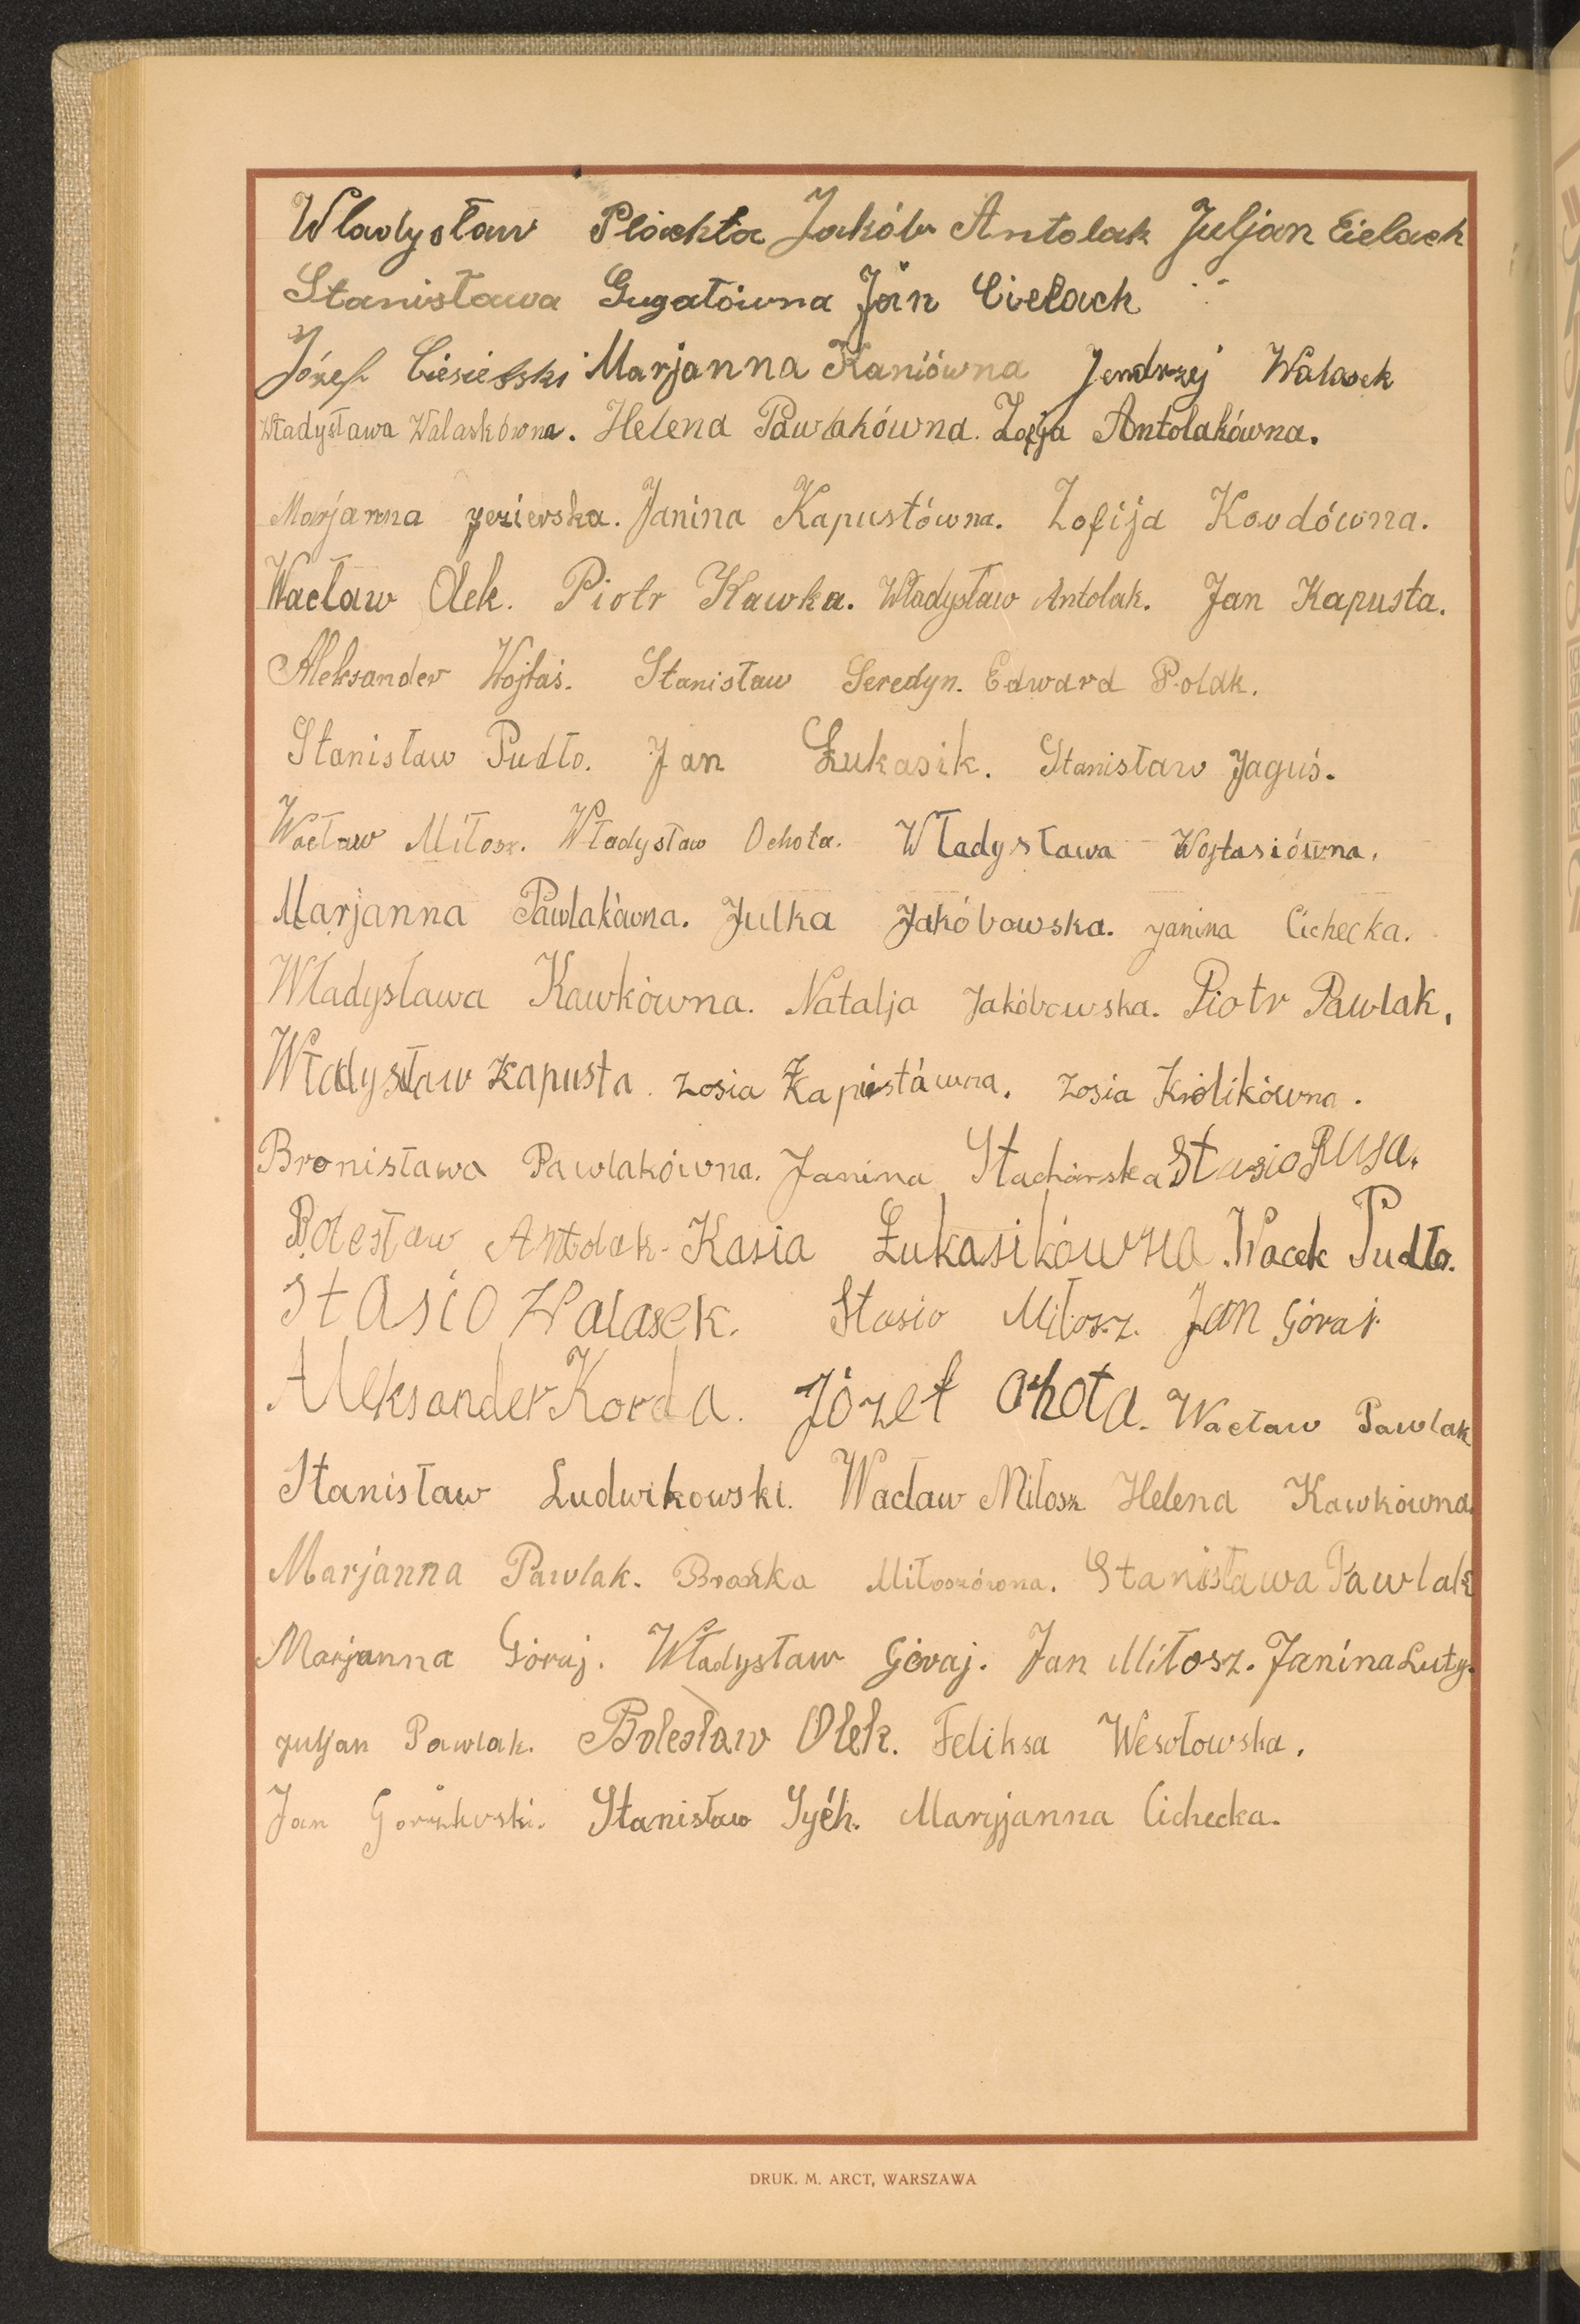 Władysław Płachta Jakób Antolak Juljan Cielach
Stanisława Gugałówna Jan Cielach
Józef Ciesielski Marjanna Kaniówna Jendrzej Walasek
Władysława Walaskówna. Helena Pawlakówna. Zofja Antolakówna.
Marjanna Jezierska. Janina Kapustówna. Zofija Kordówna.
Wacław Olek. Piotr Kawka. Władysław Antolak. Jan Kapusta.
Aleksander Wojtaś. Stanisław Seredyn. Edward Polak.
Stanisław Pudło. Jan Łukasik. Stanisław Jaguś.
Wacław Miłosz. Władysław Ochota. Władysława Wojtasiówna.
Marjanna Pawlakówna. Julka Jakóbowska. Janina Cichecka.
Władysława Kawkówna. Natalja Jakóbowska. Piotr Pawlak.
Władysław Kapusta. Zosia Kapustówna. Zosia Królikówna.
Bronisława Pawlakówna. Janina Stachórska Stasio Rusa.
Bolesław Antolak. Kasia Łukasikówna. Wacek Pudło.
Stasio Walasek. Stasio Miłosz. Jan Góraj.
Aleksander Korda. Józef Ohota. Wacław Pawlak
Stanisław Ludwikowski. Wacław Miłosz Helena Kawkówna.
Marjanna Pawlak. Brońka Miłoszówna. Stanisława Pawlak
Marjanna Góraj. Władysław Góraj. Jan Miłosz. Janina Luty.
Juljan Pawlak. Bolesław Olek. Feliksa Wesołowska.
Jan Stanisław Maryjanna Cichecka.
DRUK. M. ARCT, WARSZAWA